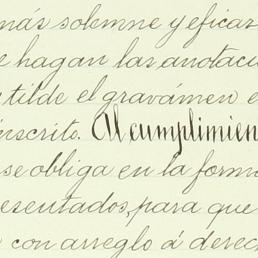 más solemne y eficaz
e hagan las anotaci
tilde el gravámen e
inscrito. Al cumplimien
se obliga en la forma
esentados, para que
con arreglo á derec